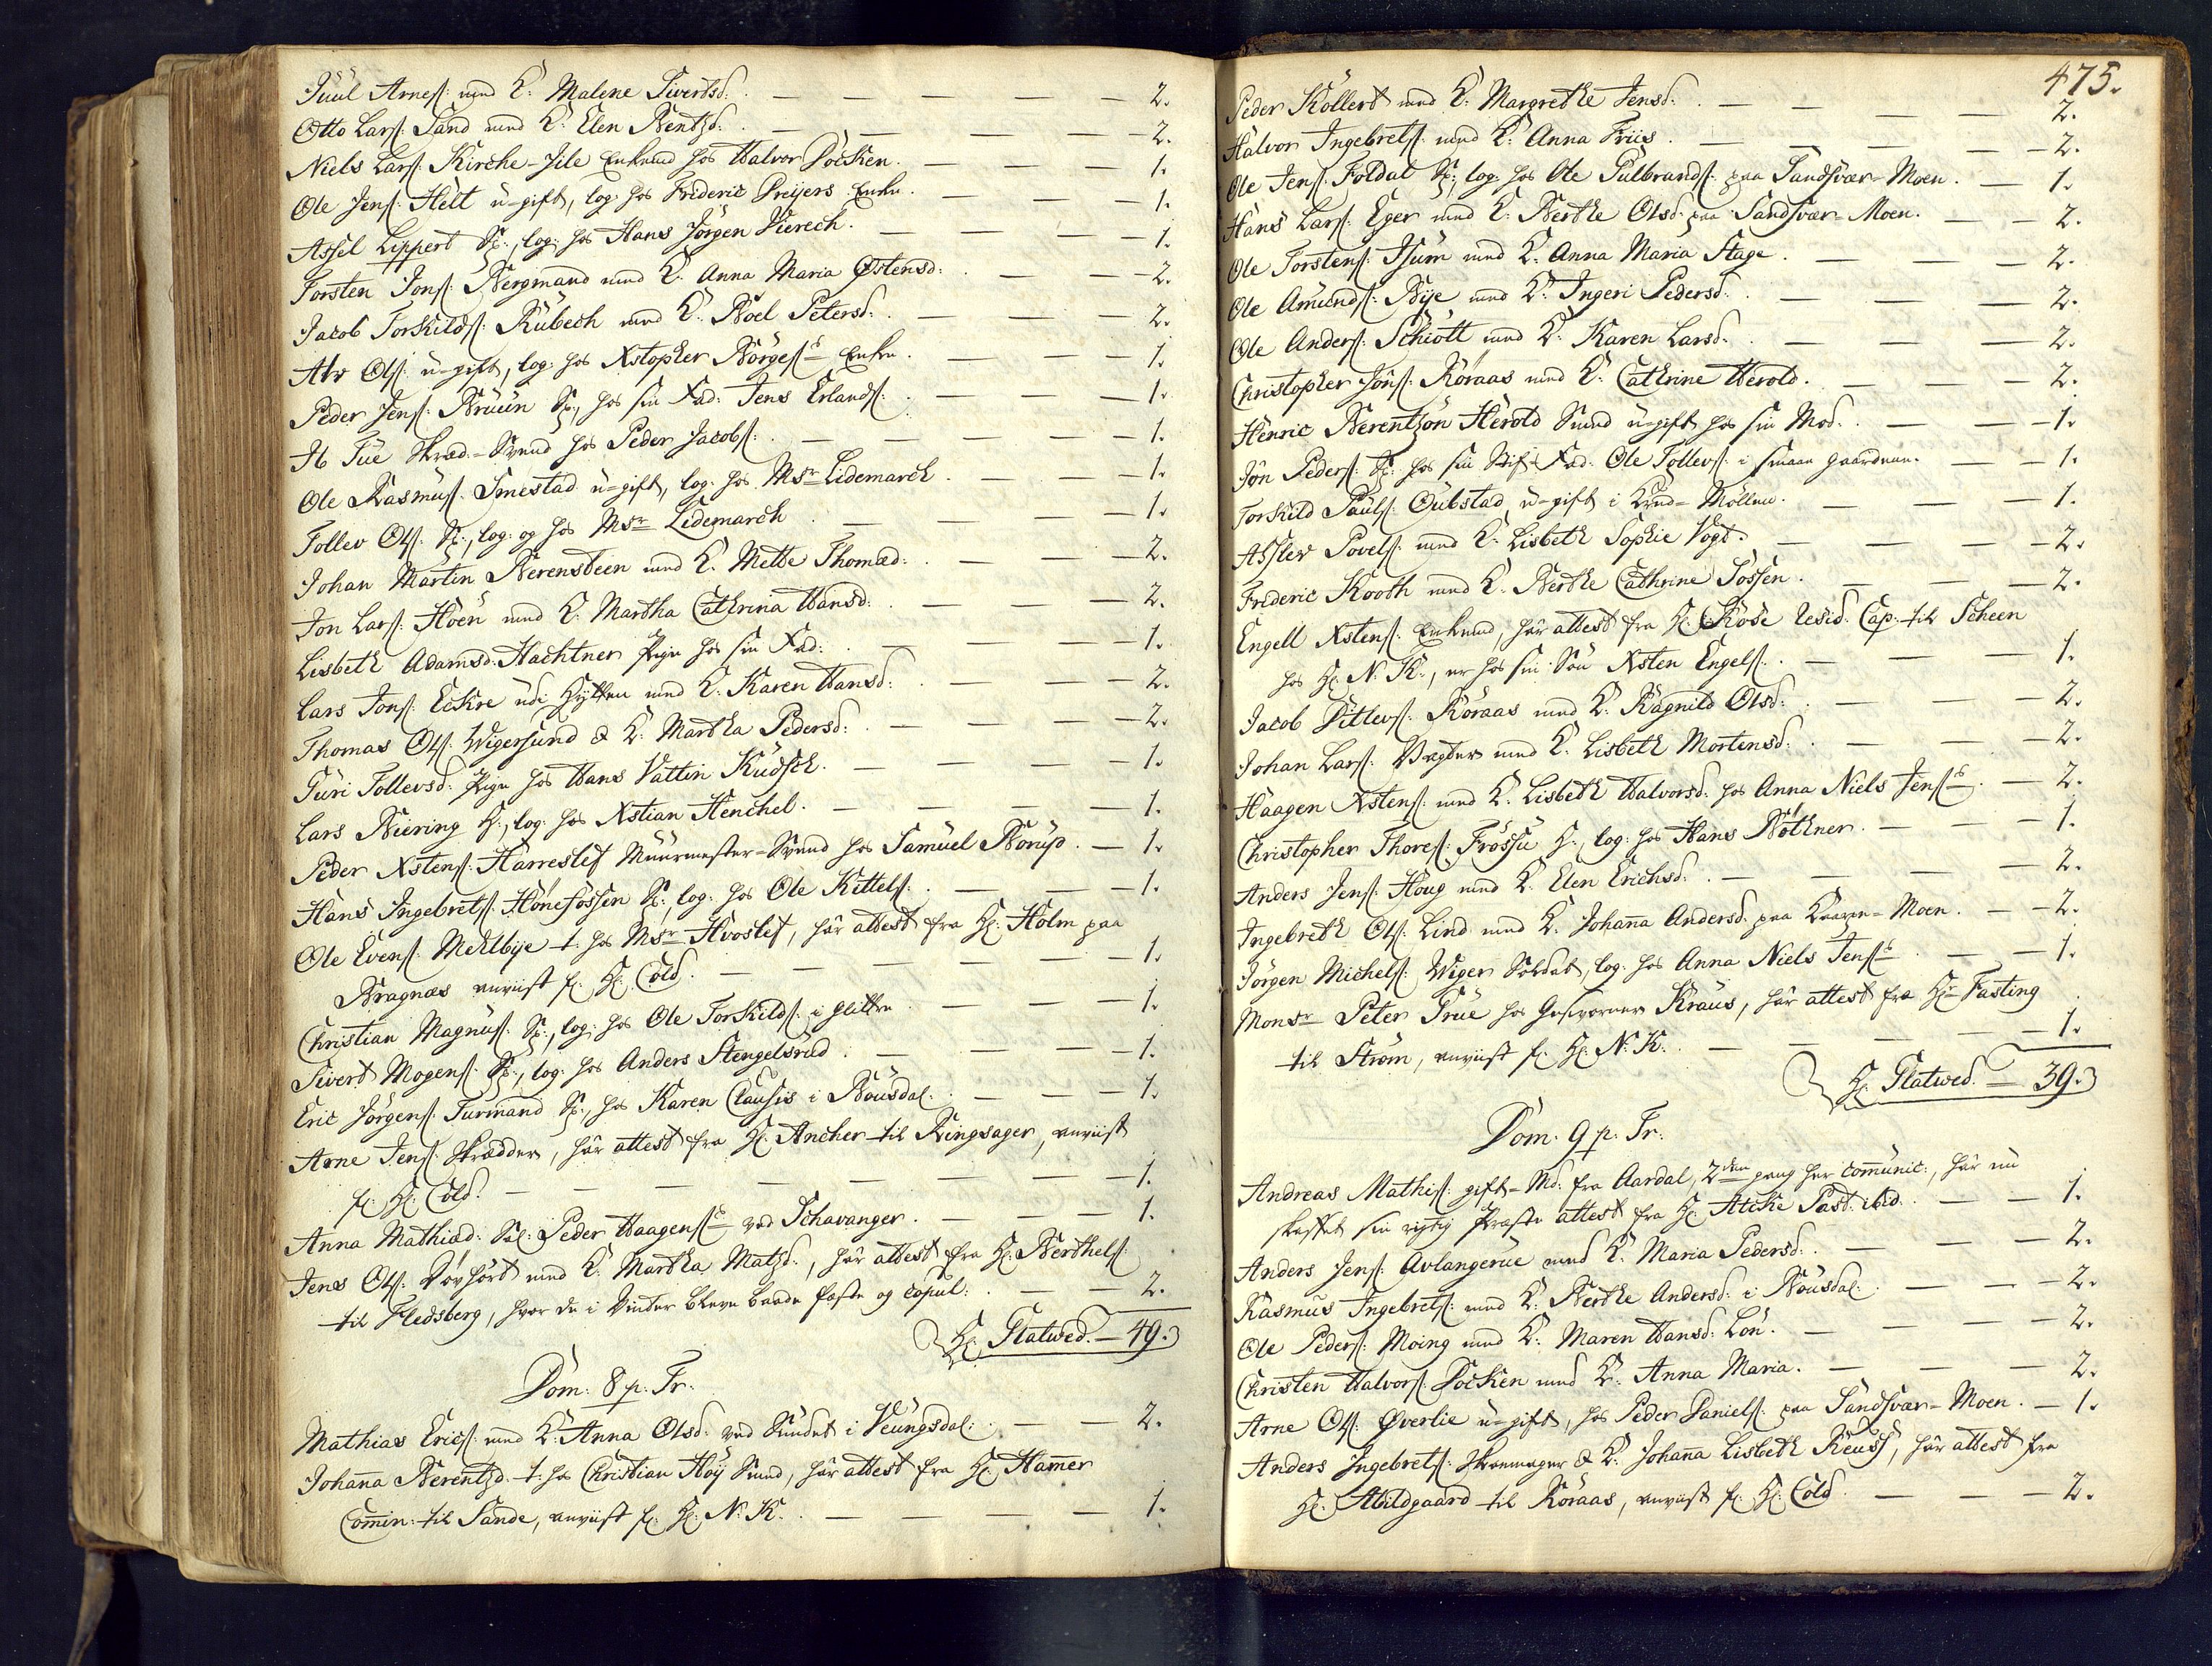 Juul Arnes: med K: Malene Sivertsd: — 2.
Otto Lars: Sand med K: Elen Bentzd: — 2.
Niels Lars: Kirche-Jile Enkemd hos Halvor Docken. — 1.
Ole Jens: Helt u-gift, log: hos Frideric Preijers Enke. — 1.
Assel Lippert K:, log: hos Hans Jörgen Vierech. — 1.
Torsten Jons: Bergmand med K: Anna Maria Østensd: — 2.
Jacob Torkilds: Rübech med K: Boel Petersd: — 2.
Atv Ols: u-gift, log: hos Xstopher Börges Enke. — 1.
Peder Jens: Bruun K:, hos sin Fad: Jens Erlands: — 1.
Ib Tue Skræd-Svend hos Peder Jacobs: — 1.
Ole Rasmus: Smestad u-gift, log: hos Msr Lidemarck — 1.
Tollev Ols: K:, log: og hos Msr Lidemarck — 1.
Johan Martin Berensteen med K: Mette Thomæd: — 2.
Jon Lars: Hoën med K: Martha Cathrina Hansd: — 2.
Lisbeth Adamsd: Hachtner Pige hos sin Fad: — 1.
Lars Jons: Eckre ude Hytten med K: Karen Hansd: — 2.
Thomas Ols: Wigersund & K: Martha Pedersd: — 2.
Turi Tollevsd: Pige hos Hans Vattin Kudsch. — 1.
Lars Biering K:, log: hos Xstian Henchel. — 1.
Peder Xstens: Harreslef Muurmester-Svend hos Samuel Borup. — 1.
Hans Ingebrets: Hönefossen K:, log: hos Ole Kittels: — 1.
Ole Evens: Mehlbye t: hos Msr Hvoslef, har attest fra Hr: Holm paa
Bragnæs anviist f: Hr: Cold. — 1.
Christian Magnus: K:, log: hos Ole Torkilds: i Glitre — 1.
Sivert Mogens: K:, log: hos Anders Stengelsrud. — 1.
Eric Jörgens: Turmand K:, hos Karen Clausis i Rousdal. — 1.
Arne Jens: Skrædder, har attest fra Hr: Ancher til Ringsager, anviist
f: Hr: Cold. — 1.
Anna Mathiæd: Sal: Peder Haagens ved Schavanger. — 1.
Jens Ols: Dovhört med K: Martha Matzd:, har attest fra Hr: Berthels:
til Fledsberg, hvor de i Vinter bleve baade fæste og copul: — 2.
Hr: Platwed. — 49.
Dom: 8 p. Tr.
Mathias Erics: med K: Anna Olsd: ved Sundet i Veungsdal: — 2.
Johanna Berentzd: t: hos Christian Höy Smed, har attest fra Hr: Hamer
Comin: til Sande, anviist f: Hr: N: K. — 1.
475.
Peder Kollert med K: Margrethe Jensd: — 2.
Halvor Ingebrets: med K: Anna Friis. — 2.
Ole Jens: Foldal K:, log: hos Ole Gulbrands: paa Sandsvær-Moen. — 1.
Hans Lars: Eger med K: Berthe Olsd: paa Sandsvær-Moen. — 2.
Ole Torstens: Isum med K: Anna Maria Stage. — 2.
Ole Amunds: Bye med K: Ingeri Pedersd: — 2.
Ole Anders: Schiött med K: Karen Larsd. — 2.
Christopher Jöns: Röraas med K: Cathrine Herold. — 2.
Henric Berentzön Herold Smed u-gift hos sin Mod. — 1.
Jon Peders: K: hos sin Stif-Fad: Ole Tollevs: i smaae Gaardene. — 1.
Torkild Pauls: Oubstad, u-gift i Krud-Möllen. — 1.
Asslev Povels: med K: Lisbeth Sophie Vogt. — 2.
Frideric Kooth med K: Berthe Cathrine Tossen. — 2.
Engell Xstens: Enkemd, har attest fra Hr: Röse resid: Cap: til Scheen
hos Hr: N: K:, er hos sin Sön Xsten Engels: — 1.
Jacob Ditlevs: Röraas med K: Ragnild Olsd: — 2.
Johan Lars: Vægter med K: Lisbeth Mortensd: — 2.
Haagen Xstens: med K: Lisbeth Halvorsd: hos Anna Niels Jens — 2.
Christopher Thores: Frössu K:, log: hos Hans Böthner. — 1.
Anders Jens: Houg med K: Elen Erichsd: — 2.
Ingebreth Ols: Lind med K: Johana Andersd: paa Moen. — 2.
Jörgen Michels: Wiger Soldat, log: hos Anna Niels Jens — 1.
Monsr Peter True hos Gesvorner Kraus, har attest fra Hr Fasting
til Ström, anviist f: Hr: N: K. — 1.
Hr: Platwed. — 39.
Dom: 9 p. Tr.
Andreas Mathis: gift-Md: fra Aardal, 2den gang her communic:, har nu
skaffet sin rigtig Præste attest fra Hr: Atcke Past: ibid. — 1.
Anders Jens: Avlangerue med K: Maria Pedersd: — 2.
Rasmus Ingebrets: med K: Berthe Andersd: i Rousdal: — 2.
Ole Peders: Moing med K: Maren Hansd: Lön. — 2.
Christen Halvors: Docken med K: Anna Maria. — 2.
Arne Ols: Øverlie u-gift, hos Peder Daniels: paa Sandsvær-Moen. — 1.
Anders Ingebrets: Skoemager & K: Johana Lisbeth Reuss, har attest fra
Hr: Abildgaard til Röraas, anviist f: Hr: Cold — 2.